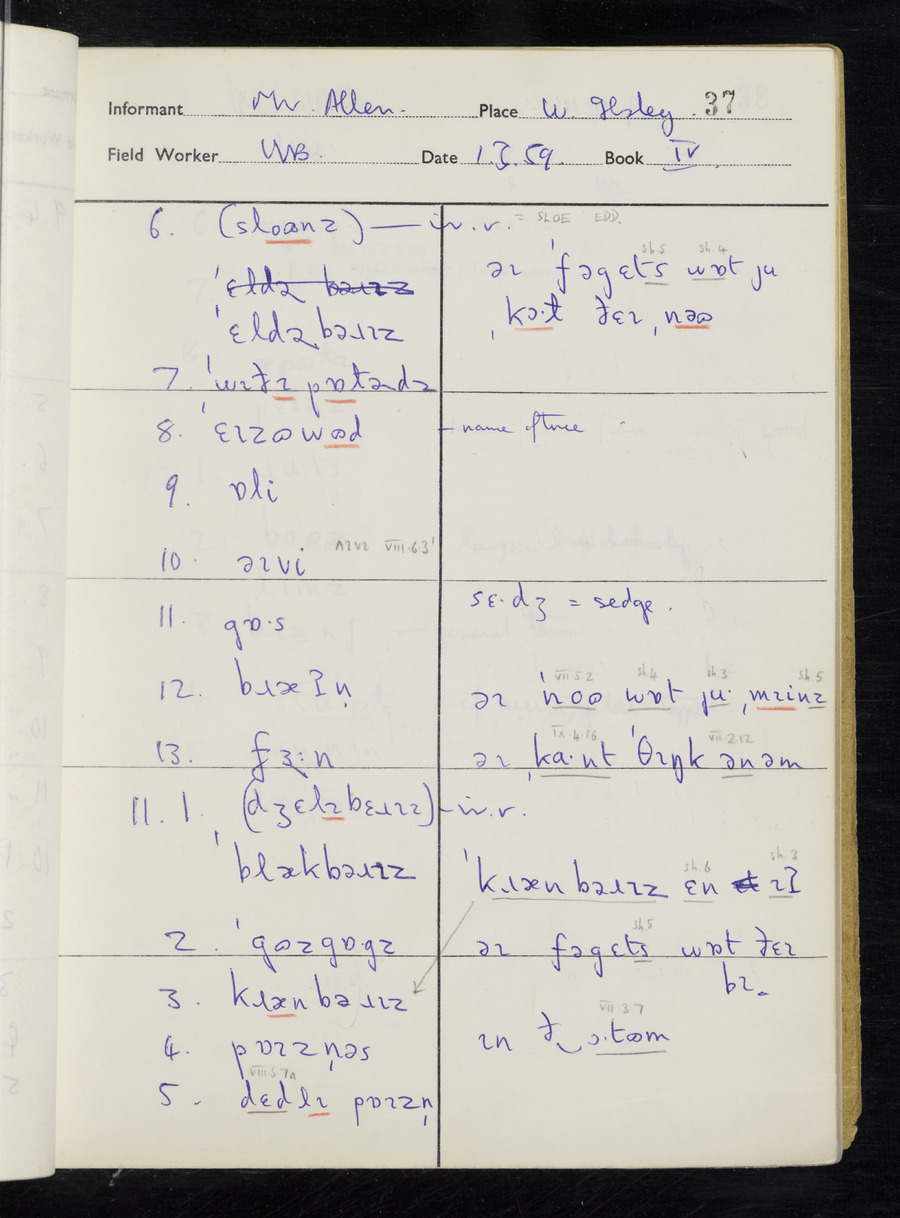 Informant Mr. Allen. Place W. Ilsley. 37
Field Worker WB. Date 1.3.59. Book IV
6. (sloʊnz) — i.r. = SLOE EDD.
ˈɛldə bəɹɪz
ˈɛldəˌbəɹɪz
7. ˈwɪðɪ
8. ˈɛɪzʊwʊd – name of tree
9. ɒli
10. əɪvi ʌɪvɪ VIII.6.3'
11. gɒˑs
12. bɹæʔn̩
13. fɜːn
11. 1. (dʒɛlɪbɛɹɪz) – i.r.
ˈblækbəɹɪz
2. ˈgʊzgɒgz
3. kɹænbəɹɪz
4. pɒɪzn̩əs
VIII.5.7a
5. dɛdlɪ pɒɪzn̩
sh.5 sh.4
əɪ ˈfəgɛts wɒt ju
ˌkɔˑt ðɛɪ ˌnəʊ
sɛˑdʒ = sedge.
VII.5.2 sh.4 sh.3 sh.5
əɪ ˈnoʊ wɒt juˑ ˌmɪinz
IX.4.16 VII.2.12
əɪ ˌkɑˑnt ˈθɪŋk ənəm
sh.6 sh.3
ˈkɹænbəɹɪz ɛn ɪʔ
sh.5
əɪ fəgɛts wɒt ðɛɪ
bɪ.
VII.3.7
ɪn ð‿ɔːtʊm